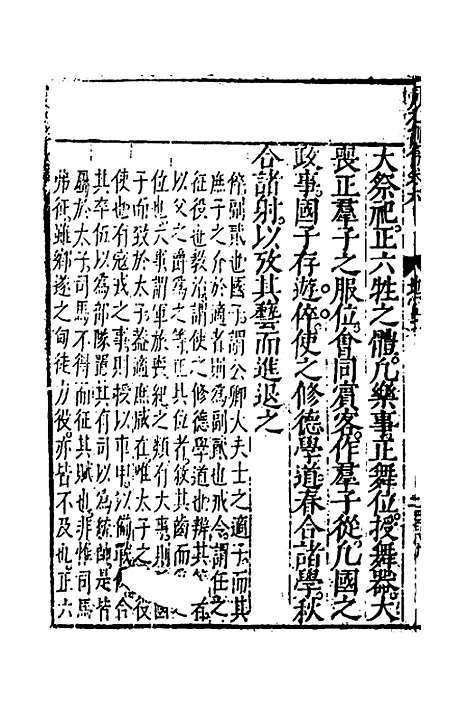 大祭祀正六牲之體凡樂事正舞位授舞器大
喪正羣子之服位會同賓客作羣子從凡國之
政事國子存遊倅使之修德學道春合諸學秋
合諸射以攷其藝而進退之
倅副貳也國子謂公卿大夫士之適子而其
庶子之介於適者則為副貳也戒令謂任之
征役也教治謂使之修德學道也辨其等在
以父之爵爲之等正其位者敘其齒而
位也大事謂軍旅喪紀之類有大事則國
子而致於太子葢適庶咸在唯太子之役
使也有寇戎之事則授以車甲以備戒合
其卒伍以為部隊置其有司以為統帥是皆
屬於太子司馬不得而征其賦也非惟司馬
弗征雖鄉遂之甸徒力役亦皆不及也正六